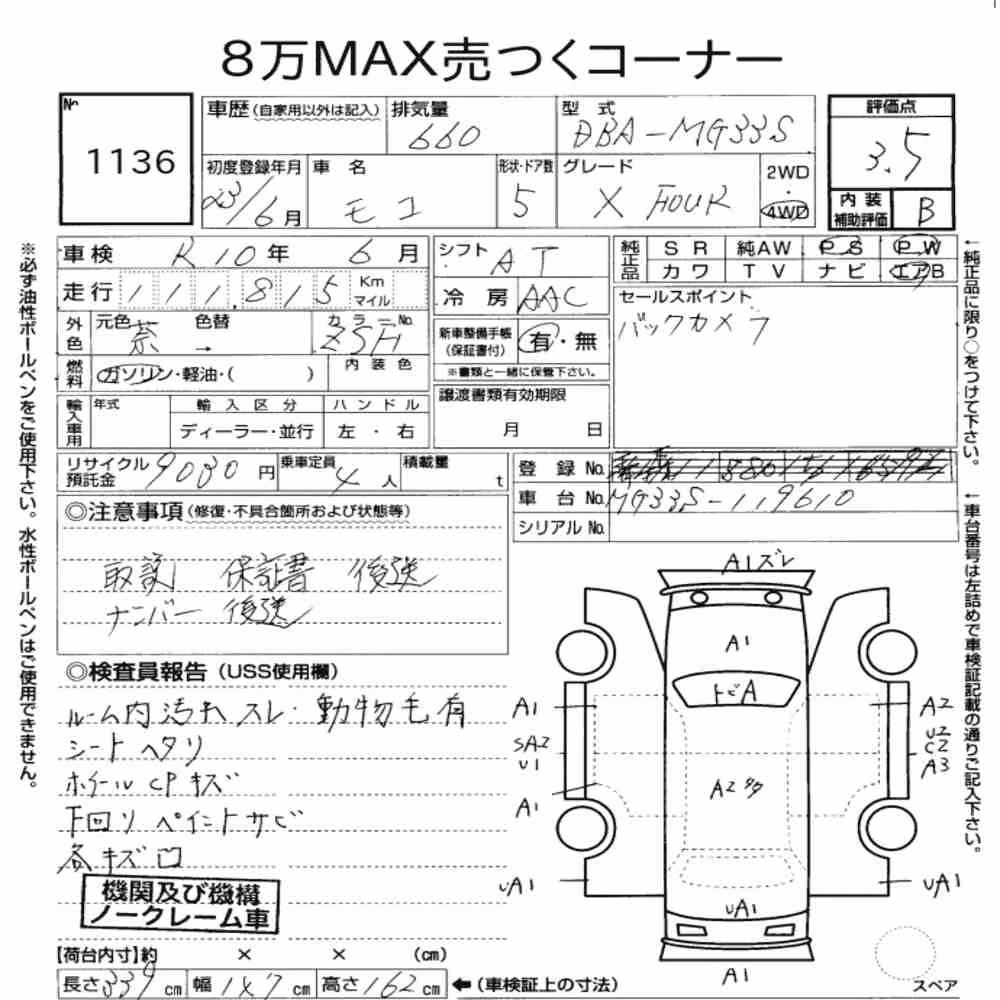 8万MAX売つくコーナー
No.
1136
車歴(自家用以外は記入)
排気量
660
型式
DBA-MG33S
評価点
3.5
初度登録年月
23/6月
車名
モコ
形状・ドア数
5
グレード
X FOUR
2WD
・
4WD
内装
補助評価
B
車検 R10年 6月
シフト AT
純正品
SR 純AW PS PW
カワ TV ナビ エアB
走行 111,815 Km マイル
冷房 AAC
セールスポイント
バックカメラ
外色
元色 茶 → 色替
カラーNo. ZSH
新車整備手帳
(保証書付)
有・無
※書類と一緒に保管下さい。
燃料
ガソリン・軽油・( )
内装色
輸入車用
年式
輸入区分
ディーラー・並行
ハンドル
左・右
譲渡書類有効期限
月 日
リサイクル預託金 9030円
乗車定員 4人
積載量 t
登録No.
車台No. MG33S-119610
シリアルNo.
◎注意事項(修復・不具合箇所および状態等)
取説 保証書 後送
ナンバー 後送
◎検査員報告(USS使用欄)
ルーム内汚れ スレ・動物毛有
シート ヘタリ
ホイールCPキズ
下回り ペイントサビ
各キズ凹
機関及び機構
ノークレーム車
【荷台内寸】約 × × (cm)
長さ339cm 幅147cm 高さ162cm
←(車検証上の寸法)
A1ズレ
A1
トビA
A1
A2
SA2
U1
U2
C2
A3
A1
A2多
UA1
UA1
UA1
A1
スペア
※必ず油性ボールペンをご使用下さい。水性ボールペンはご使用できません。
←純正品に限り○をつけて下さい。
←車台番号は左詰めで車検証記載の通りご記入下さい。